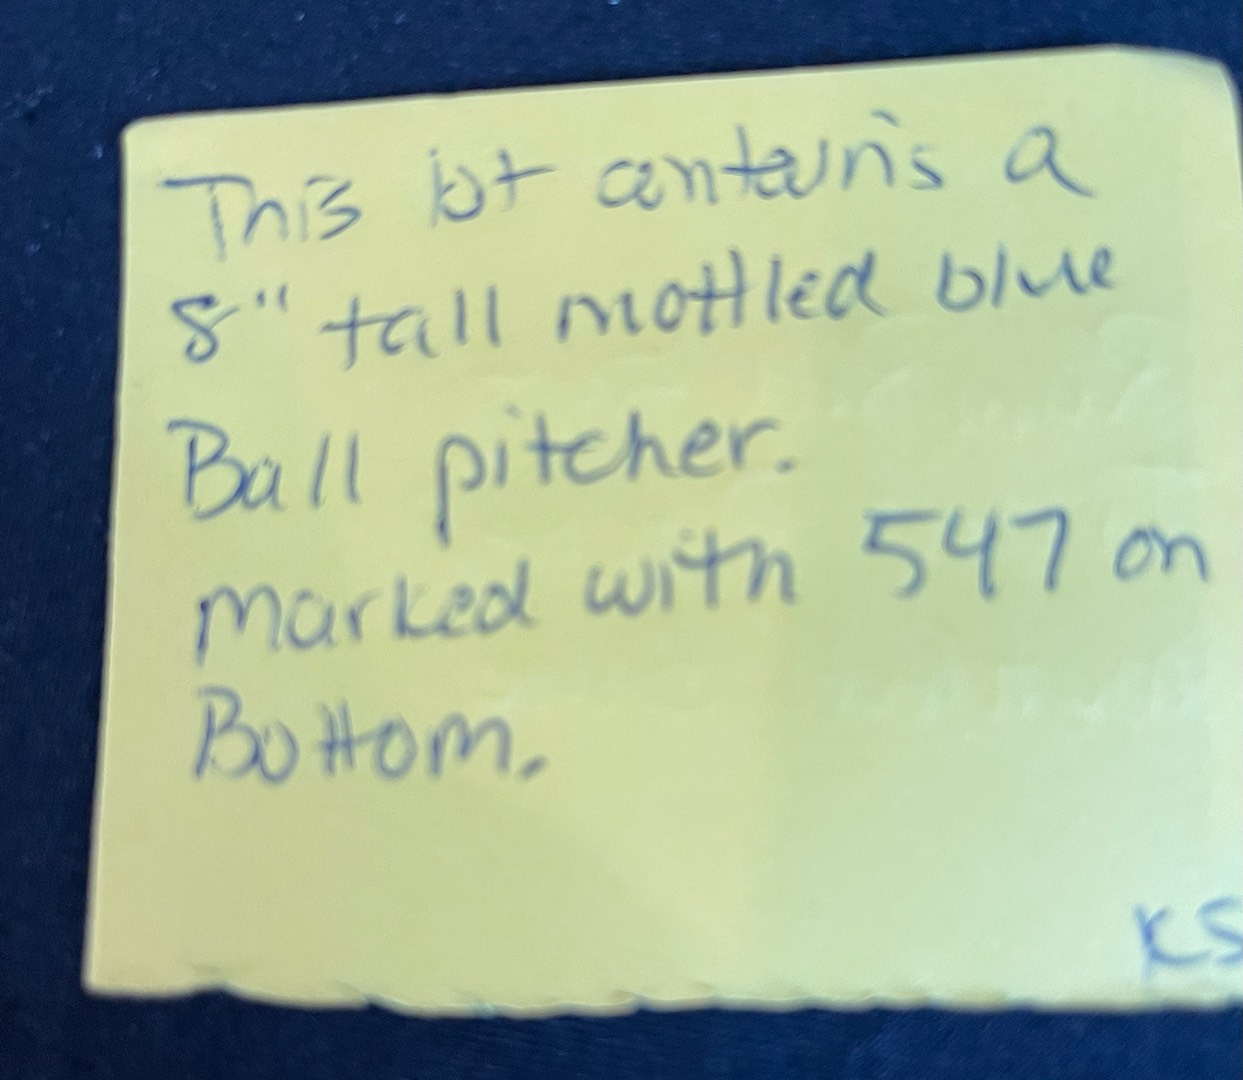 This lot contains a
8" tall mottled blue
Ball pitcher.
marked with 547 on
Bottom.
KS